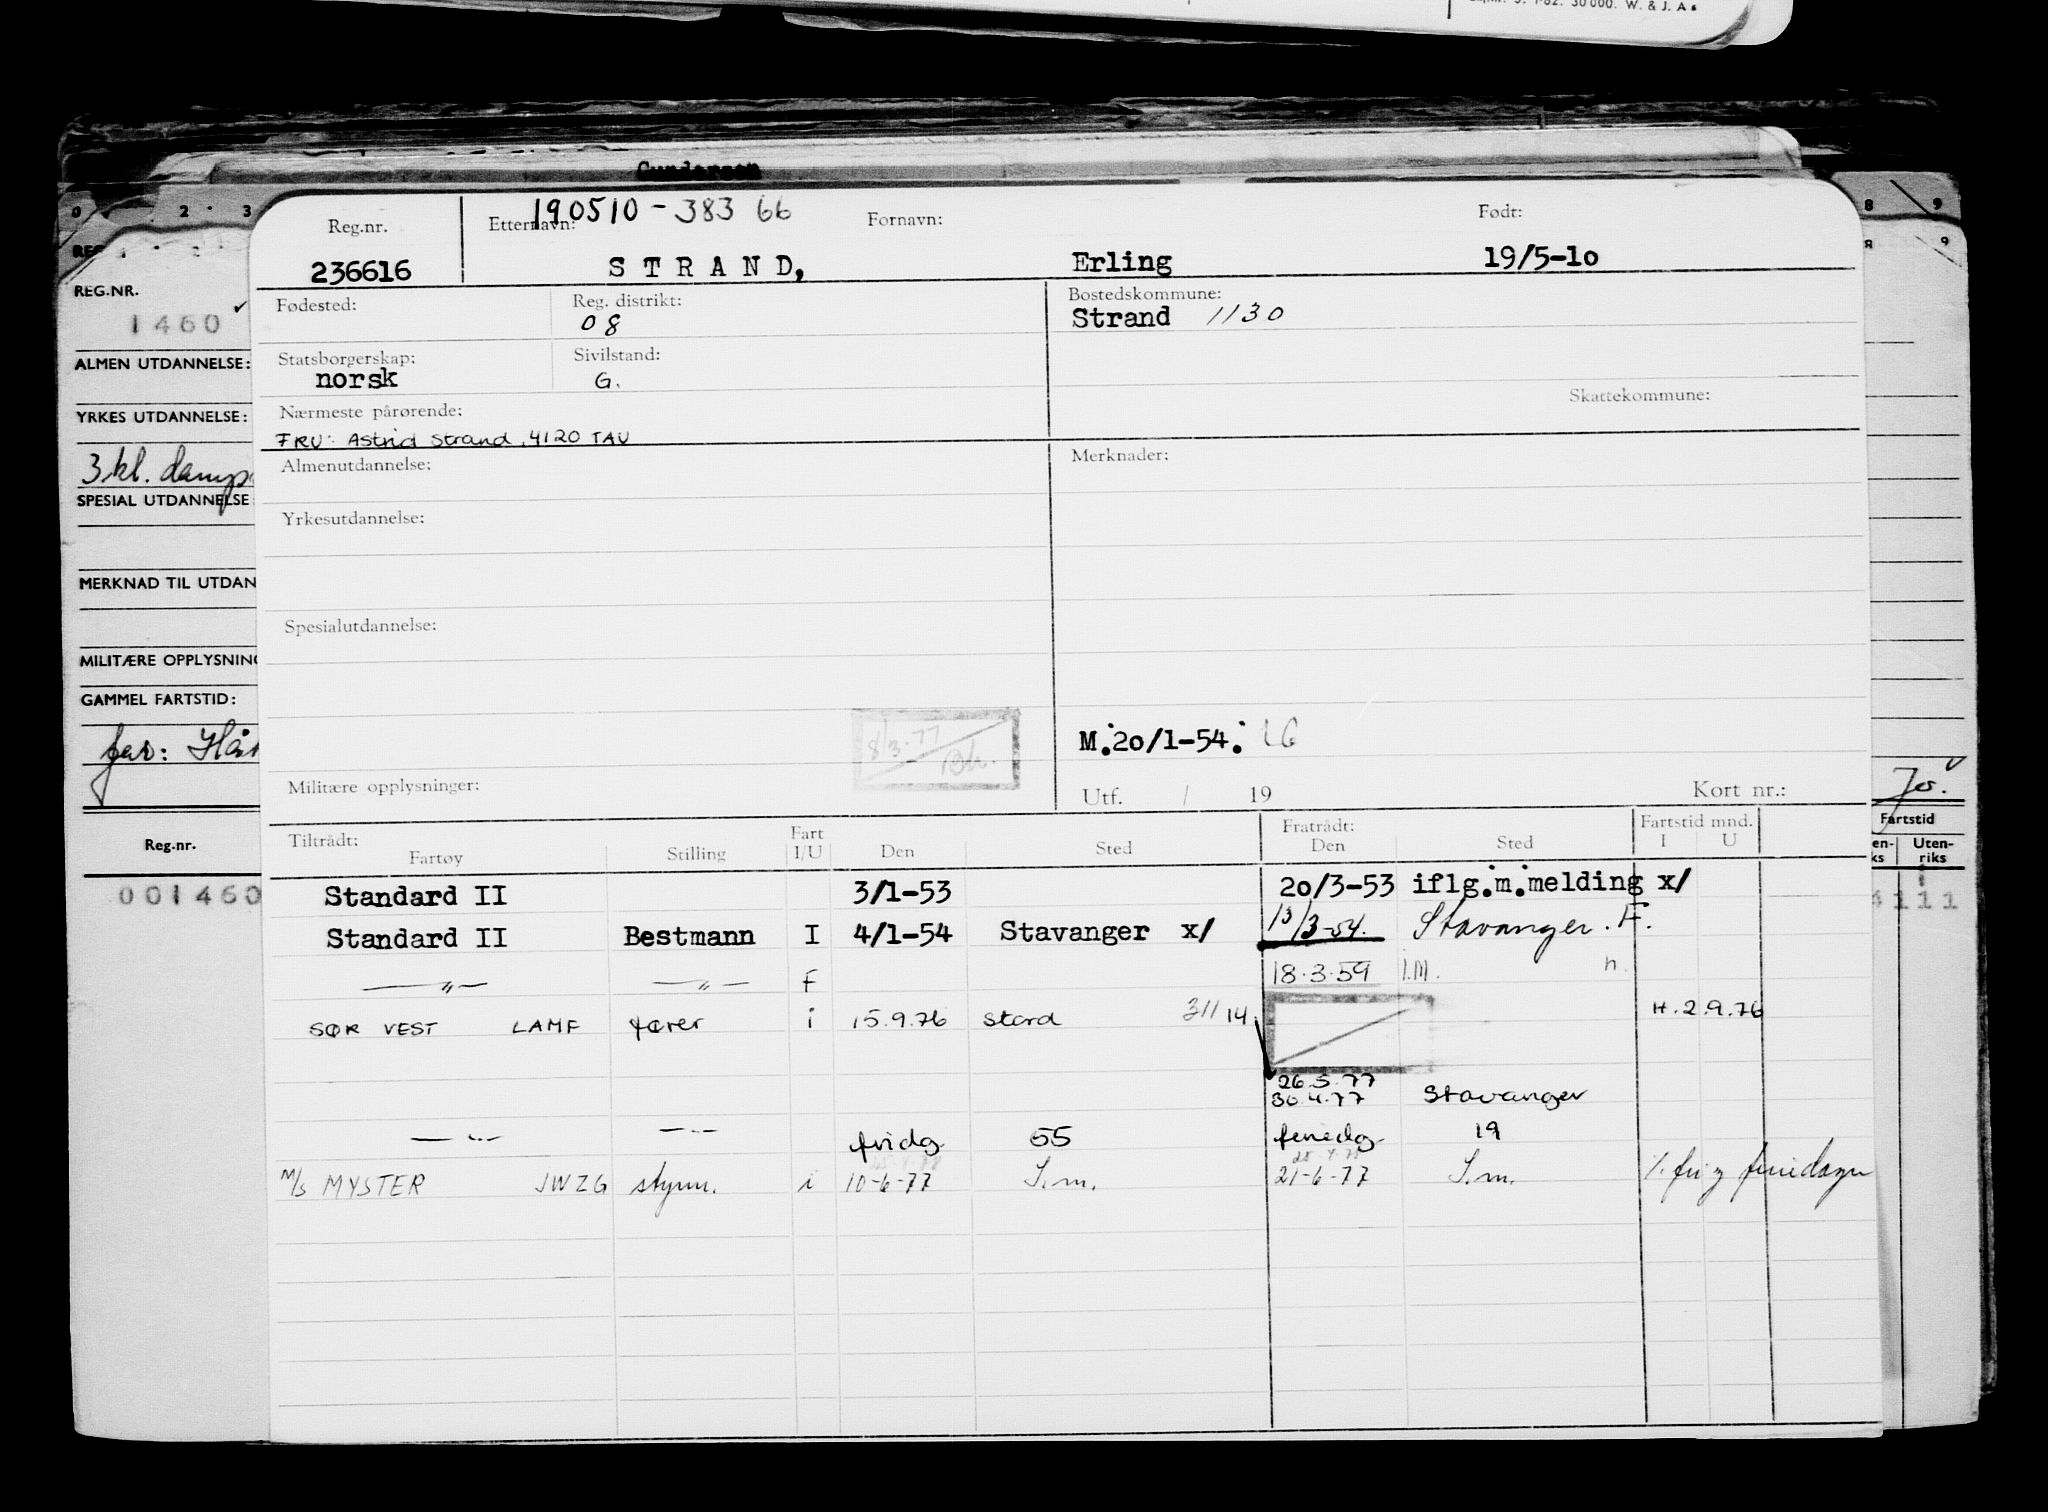 30000. W. & J. A.
Gundersen
0 2 3 8 9
8 9
REG.NR.
1460
ALMEN UTDANNELSE:
YRKES UTDANNELSE:
3 kl. damp
SPESIAL UTDANNELSE
MERKNAD TIL UTDAN
MILITÆRE OPPLYSNING
GAMMEL FARTSTID:
far:
Reg.nr.
001460
Jo.
Fartstid
en-ks Uten-riks
111
190510 - 383 66
Reg.nr. Etternavn: Fornavn: Født:
236616 STRAND, Erling 19/5-10
Fødested: Reg. distrikt: Bostedskommune:
08 Strand 1130
Statsborgerskap: Sivilstand:
norsk G.
Skattekommune:
Nærmeste pårørende:
FRU: Astrid Strand, 4120 TAU
Almenutdannelse: Merknader:
Yrkesutdannelse:
Spesialutdannelse:
8/3-77
Bh.
M.20/1-54. LG
Militære opplysninger: Utf. / 19 Kort nr.:
Tiltrådt: Fart Fratrådt: Fartstid mnd.
Fartøy Stilling I/U Den Sted Den Sted I U
Standard II 3/1-53 20/3-53 iflg.m.melding x/
Standard II Bestmann I 4/1-54 Stavanger x/ 13/3-54. Stavanger. F.
—"— —"— F 18.3.59 I.M. h.
SØR VEST LAMF fører i 15.9.76 stord 311 14 H.2.9.76
26.5.77
30.4.77 Stavanger
—"— —"— fridg. 55 feriedg. 19
M/S MYSTER JWZG styrm. i 10-6-77 I.m. 21-6-77 I.m. %. fri & feriedager